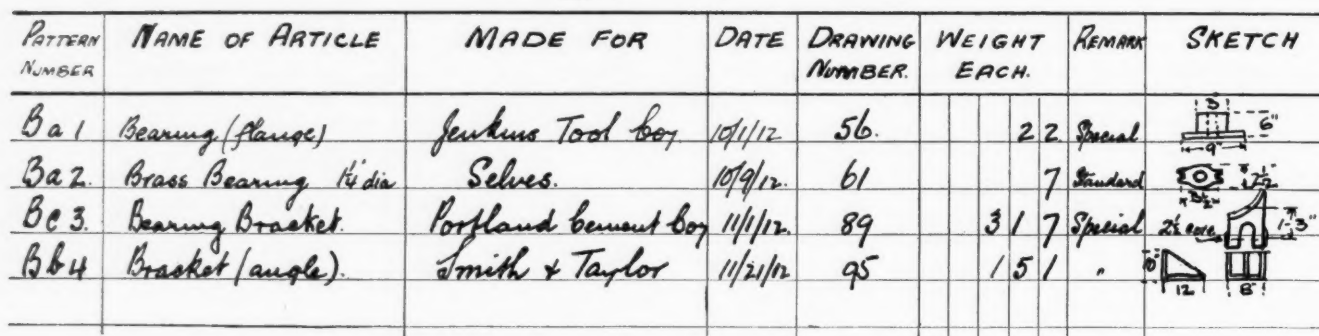 PATTERN NUMBER NAME OF ARTICLE MADE FOR DATE DRAWING NUMBER. WEIGHT EACH. REMARK SKETCH
Ba 1 Bearing (flange) Jenkins Tool Coy 10/1/12 56. 22 Special 3 6" 9"
Ba 2. Brass Bearing 1¼ dia Selves. 10/9/12. 61 7 Standard 3½"
Bc 3. Bearing Bracket. Portland Cement Coy 11/1/12. 89 317 Special core 3"
Bb 4 Bracket (angle). Smith + Taylor 11/21/12 95 151 " 10" 12 8"